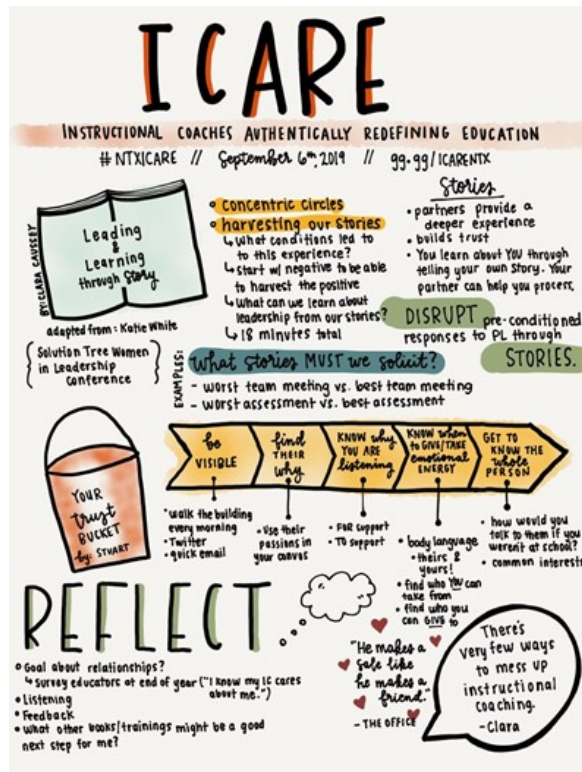 I CARE
INSTRUCTIONAL COACHES AUTHENTICALLY REDEFINING EDUCATION
#NTXICARE // September 6th, 2019 // gg.gg/ICARENTX
BY: CLARA CAUSSEY
Leading
&
Learning
through Story
adapted from: Katie White
{Solution Tree Women
in Leadership
Conference}
• concentric circles
• harvesting our stories
↳ What conditions led to
to this experience?
↳ Start w/ negative to be able
to harvest the positive
↳ What can we learn about
leadership from our stories?
↳ 18 minutes total
Stories
• partners provide a
deeper experience
• builds trust
• You learn about YOU through
telling your own story. Your
partner can help you process.
DISRUPT pre-conditioned
responses to PL through
STORIES.
EXAMPLES:
What stories MUST we solicit?
- worst team meeting vs. best team meeting
- worst assessment vs. best assessment
YOUR
trust
BUCKET
by: STUART
be
VISIBLE
• walk the building
every morning
• Twitter
• quick email
find
THEIR
why
• Use their
passions in
your canvas
KNOW why
YOU ARE
listening
• FOR support
• TO support
KNOW when
to GIVE/TAKE
emotional
ENERGY
• body language
• theirs &
yours!
• find who YOU can
take from
• find who you
can GIVE to
GET TO
KNOW THE
whole
PERSON
• how would you
talk to them if you
weren't at school?
• common interest
REFLECT
• Goal about relationships?
↳ Survey educators at end of year ("I know my IC cares
about me.")
• Listening
• Feedback
• What other books/trainings might be a good
next step for me?
"He makes a
sale like
he makes a
friend."
- THE OFFICE
There's
very few ways
to mess up
instructional
coaching.
-Clara